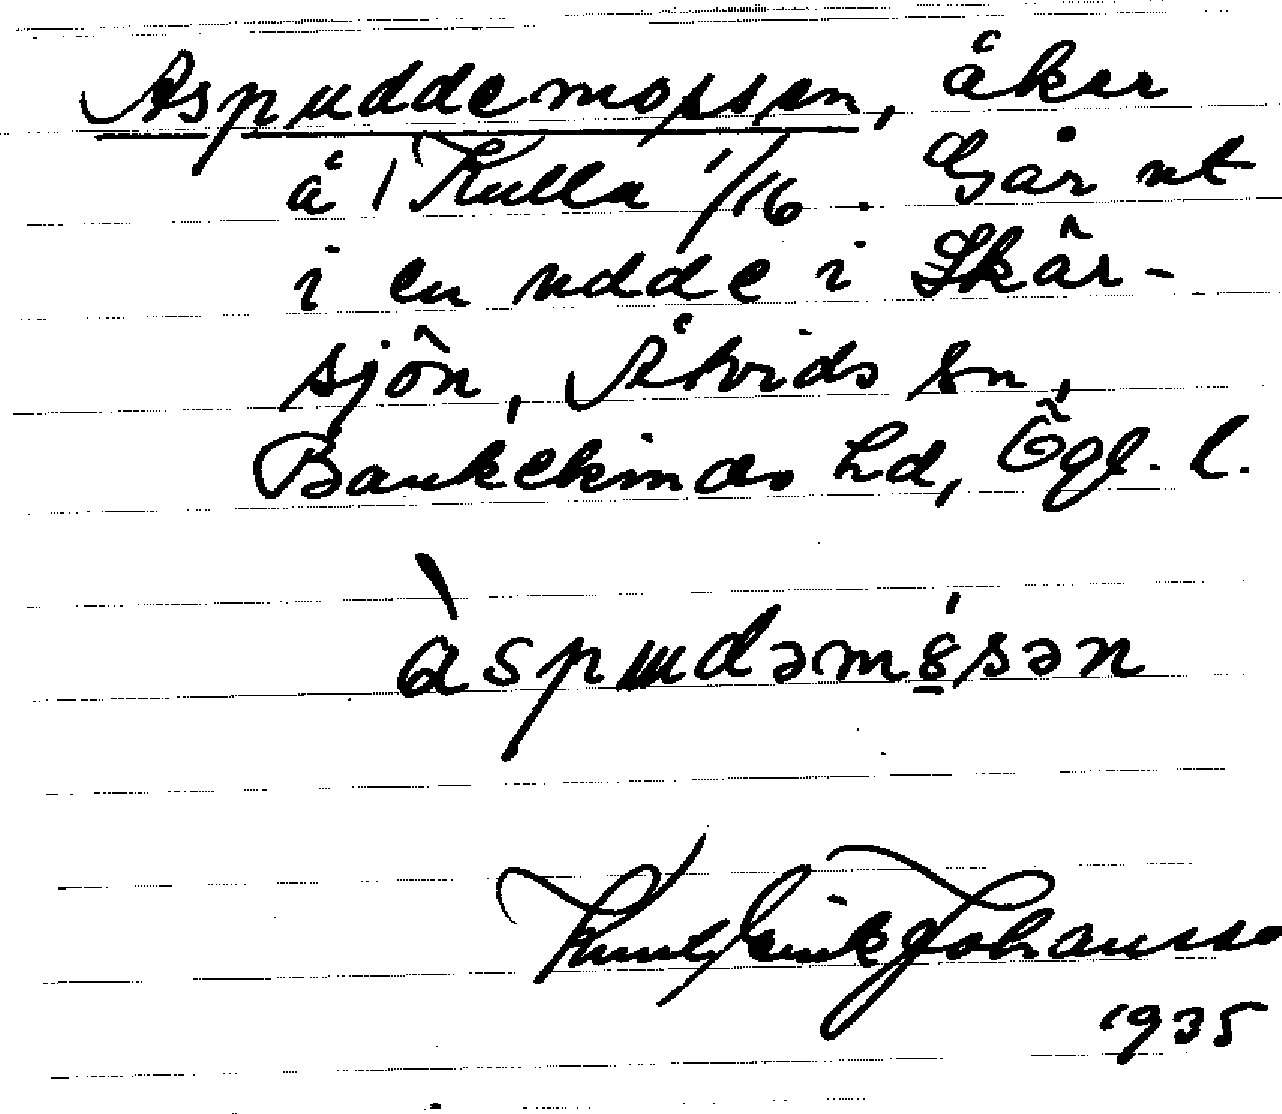 Aspuddemossen, åker
å 1 Kulla 1/16. Går ut
i en udde i Skär-
sjön, Åtvids sn,
Bankekinds hd, Ögl. l.
àspudəmósən
Knut Erik Johansso
1935